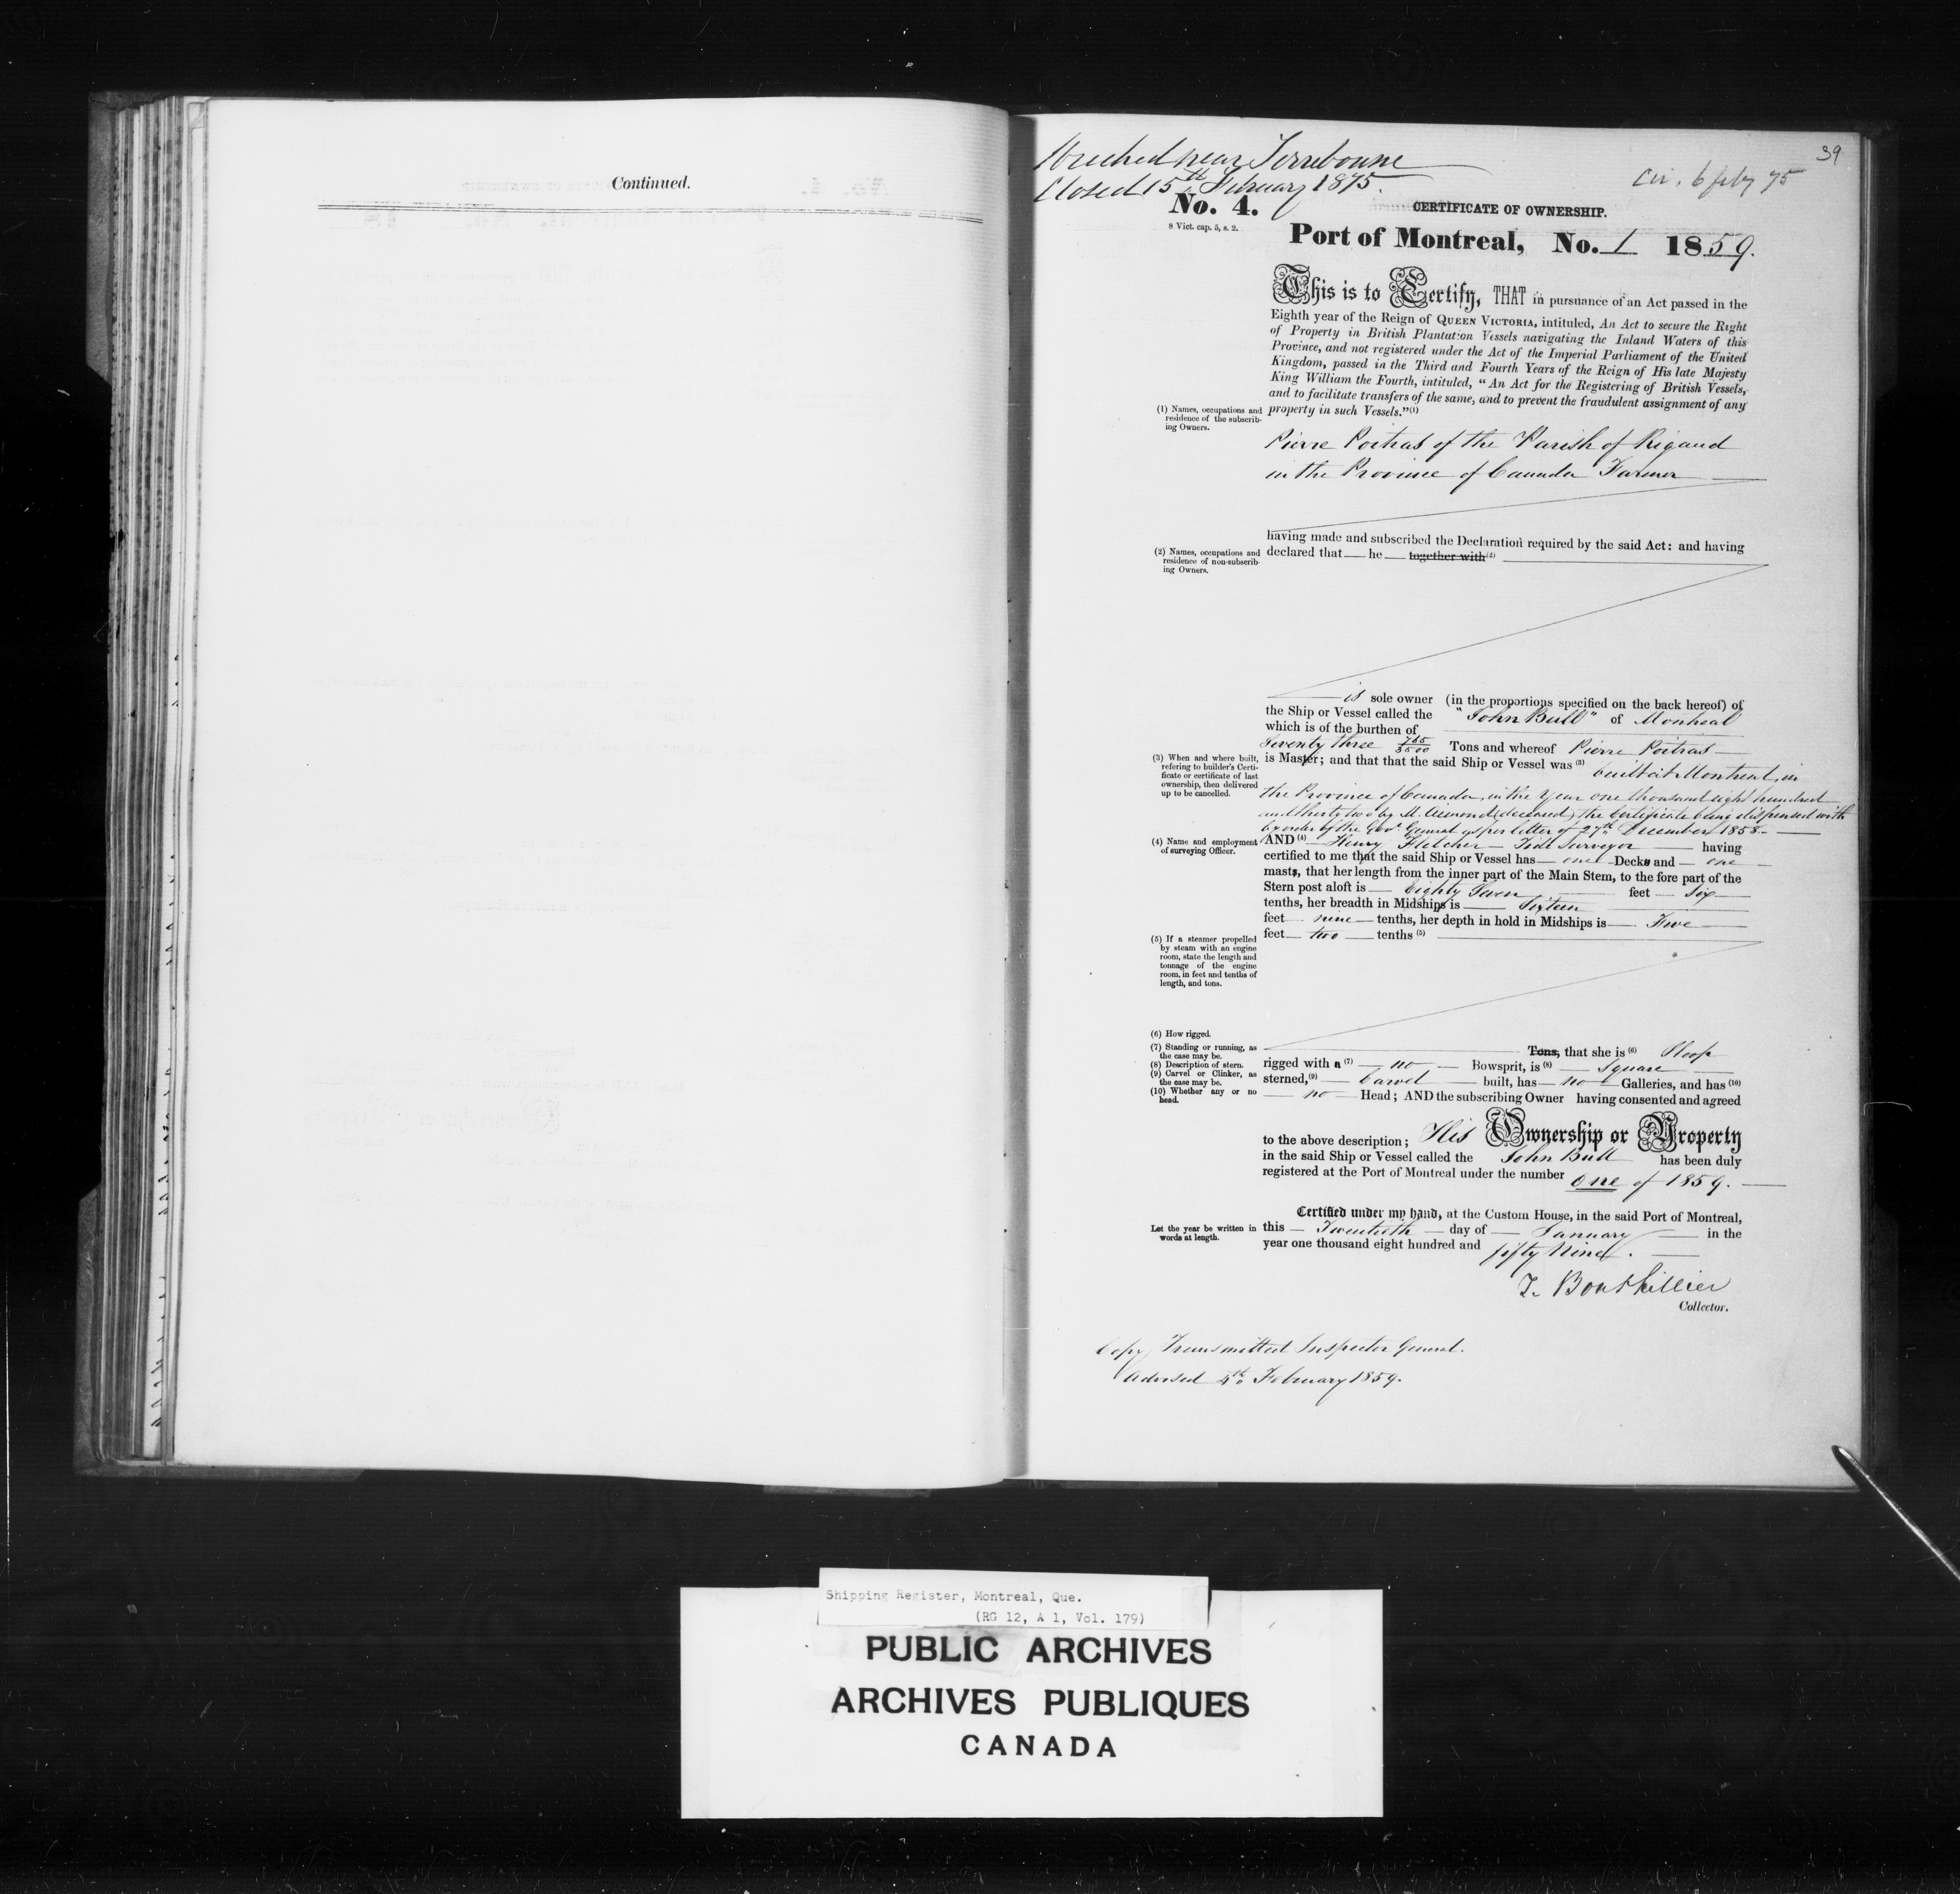 Continued.
39
Wrecked near Terrebonne
Closed 15th February 1875.
Cir. 6 feby 75
No. 4.
8 Vict. cap. 5, s. 2.
CERTIFICATE OF OWNERSHIP.
Port of Montreal, No. 1 1859.
This is to Certify, THAT in pursuance of an Act passed in the
Eighth year of the Reign of QUEEN VICTORIA, intituled, An Act to secure the Right
of Property in British Plantation Vessels navigating the Inland Waters of this
Province, and not registered under the Act of the Imperial Parliament of the United
Kingdom, passed in the Third and Fourth Years of the Reign of His late Majesty
King William the Fourth, intituled, "An Act for the Registering of British Vessels,
and to facilitate transfers of the same, and to prevent the fraudulent assignment of any
property in such Vessels."(1)
(1) Names, occupations and
residence of the subscrib-
ing Owners.
Pierre Poitras of the Parish of Rigaud
in the Province of Canada Farmer
having made and subscribed the Declaration required by the said Act: and having
declared that he together with (2)
(2) Names, occupations and
residence of non-subscrib-
ing Owners.
is sole owner (in the proportions specified on the back hereof) of
the Ship or Vessel called the "John Bull" of Montreal
which is of the burthen of
Seventy three 765/3500 Tons and whereof Pierre Poitras
is Master; and that that the said Ship or Vessel was (3) built at Montreal, in
the Province of Canada, in the Year one thousand eight hundred
and thirty two by M. (deceased) the Certificate being dispensed with
by order of the Govr. General as per letter of 27th December 1858.
(3) When and where built,
refering to builder's Certi-
ficate or certificate of last
ownership, then delivered
up to be cancelled.
(4) Name and employment
of surveying Officer.
AND (4) Henry Fletcher Tide Surveyor having
certified to me that the said Ship or Vessel has one Decks and one
masts, that her length from the inner part of the Main Stem, to the fore part of the
Stern post aloft is Eighty Seven feet six
tenths, her breadth in Midships is Sixteen
feet nine tenths, her depth in hold in Midships is Five
feet two tenths (5)
(5) If a steamer propelled
by steam with an engine
room, state the length and
tonnage of the engine
room, in feet and tenths of
length, and tons.
(6) How rigged.
(7) Standing or running, as
the case may be.
(8) Description of stern.
(9) Carvel or Clinker, as
the case may be.
(10) Whether any or no
head.
Tons, that she is (6) Sloop
rigged with a (7) no Bowsprit, is (8) Square
sterned, (9) Carvel built, has no Galleries, and has (10)
no Head; AND the subscribing Owner having consented and agreed
to the above description; His Ownership or Property
in the said Ship or Vessel called the John Bull has been duly
registered at the Port of Montreal under the number One of 1859.
Certified under my hand, at the Custom House, in the said Port of Montreal,
this Twentieth day of January in the
year one thousand eight hundred and fifty Nine.
Let the year be written in
words at length.
T. Bouthillier
Collector.
Copy Transmitted Inspector General.
Advised 4th February 1859.
Shipping Register, Montreal, Que.
(RG 12, A 1, Vol. 179)
PUBLIC ARCHIVES
ARCHIVES PUBLIQUES
CANADA